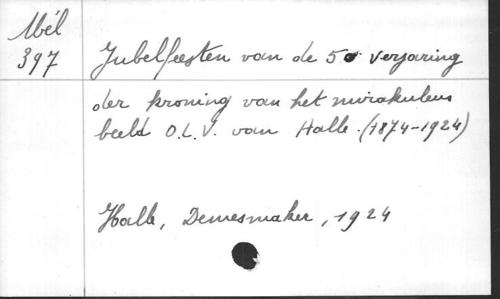 Mél
397
Jubelfeesten van de 50 verjaring
der kroning van het mirakuleus
beeld O.L.V. van Halle. (1874-1924)
Halle, Demesmaker, 1924